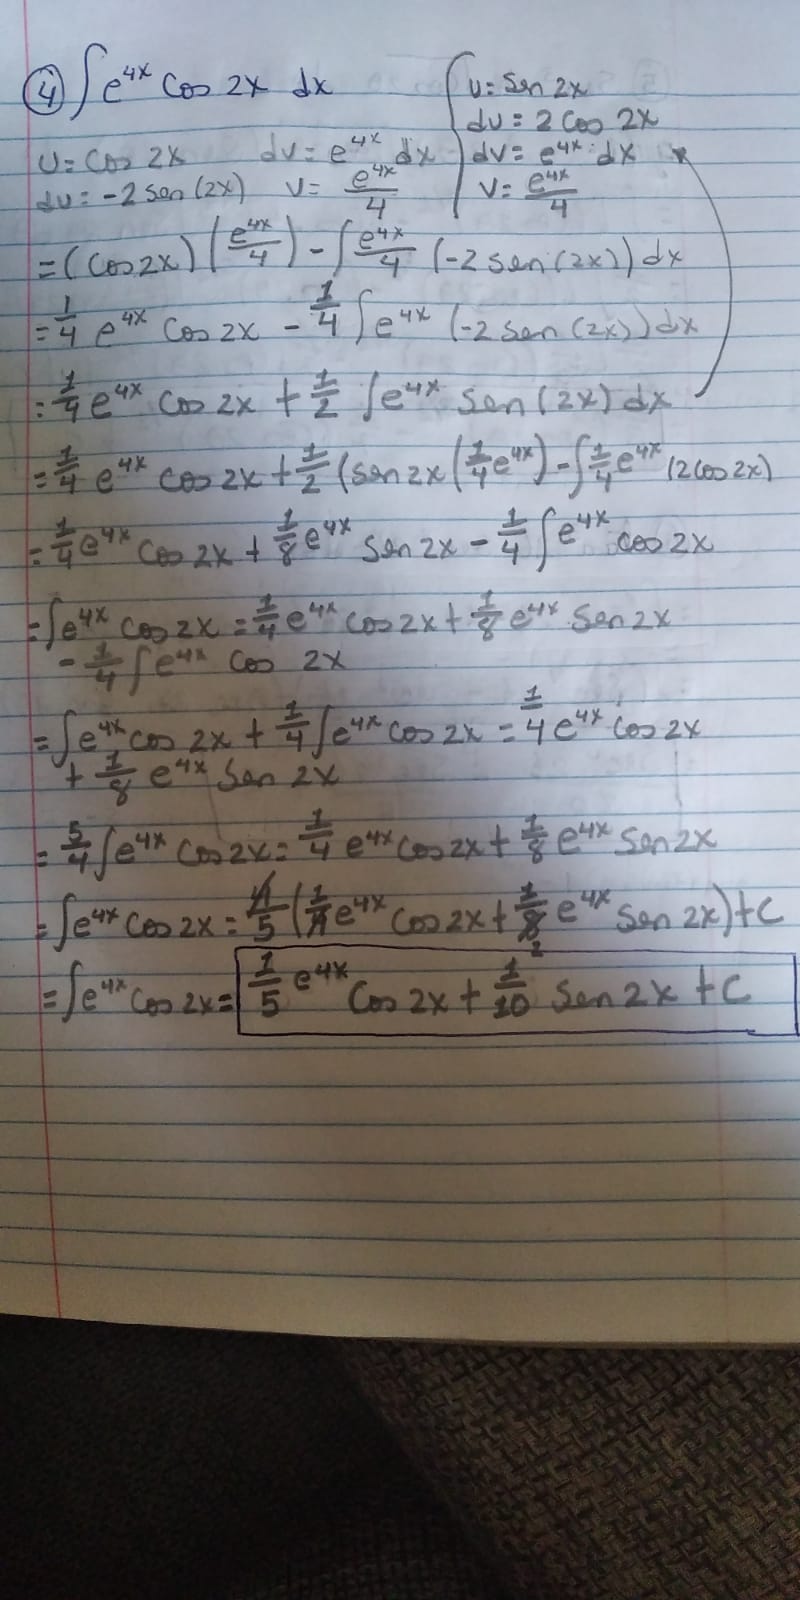 ④ ∫e^{4x} Cos 2x dx
U = Cos 2x dv = e^{4x} dx
du = -2 sen (2x) v = e^{4x}/4
U = Sen 2x
du = 2 Cos 2x
dv = e^{4x} dx
v = e^{4x}/4
= (Cos 2x) (e^{4x}/4) - ∫ e^{4x}/4 (-2 sen (2x)) dx
= 1/4 e^{4x} Cos 2x - 1/4 ∫ e^{4x} (-2 sen (2x)) dx
= 1/4 e^{4x} Cos 2x + 1/2 ∫e^{4x} sen (2x) dx
= 1/4 e^{4x} Cos 2x + 1/2 (sen 2x (1/4 e^{4x}) - ∫ 1/4 e^{4x} (2 Cos 2x)
= 1/4 e^{4x} Cos 2x + 1/8 e^{4x} sen 2x - 1/4 ∫ e^{4x} cos 2x
= ∫e^{4x} Cos 2x = 1/4 e^{4x} Cos 2x + 1/8 e^{4x} Sen 2x
- 1/4 ∫ e^{4x} Cos 2x
= ∫e^{4x} Cos 2x + 1/4 ∫e^{4x} Cos 2x = 1/4 e^{4x} Cos 2x
+ 1/8 e^{4x} Sen 2x
= 5/4 ∫e^{4x} Cos 2x = 1/4 e^{4x} Cos 2x + 1/8 e^{4x} Sen 2x
= ∫e^{4x} Cos 2x = 4/5 (1/4 e^{4x} Cos 2x + 1/8 e^{4x} Sen 2x) + C
2
= ∫e^{4x} Cos 2x = 1/5 e^{4x} Cos 2x + 1/10 Sen 2x + C